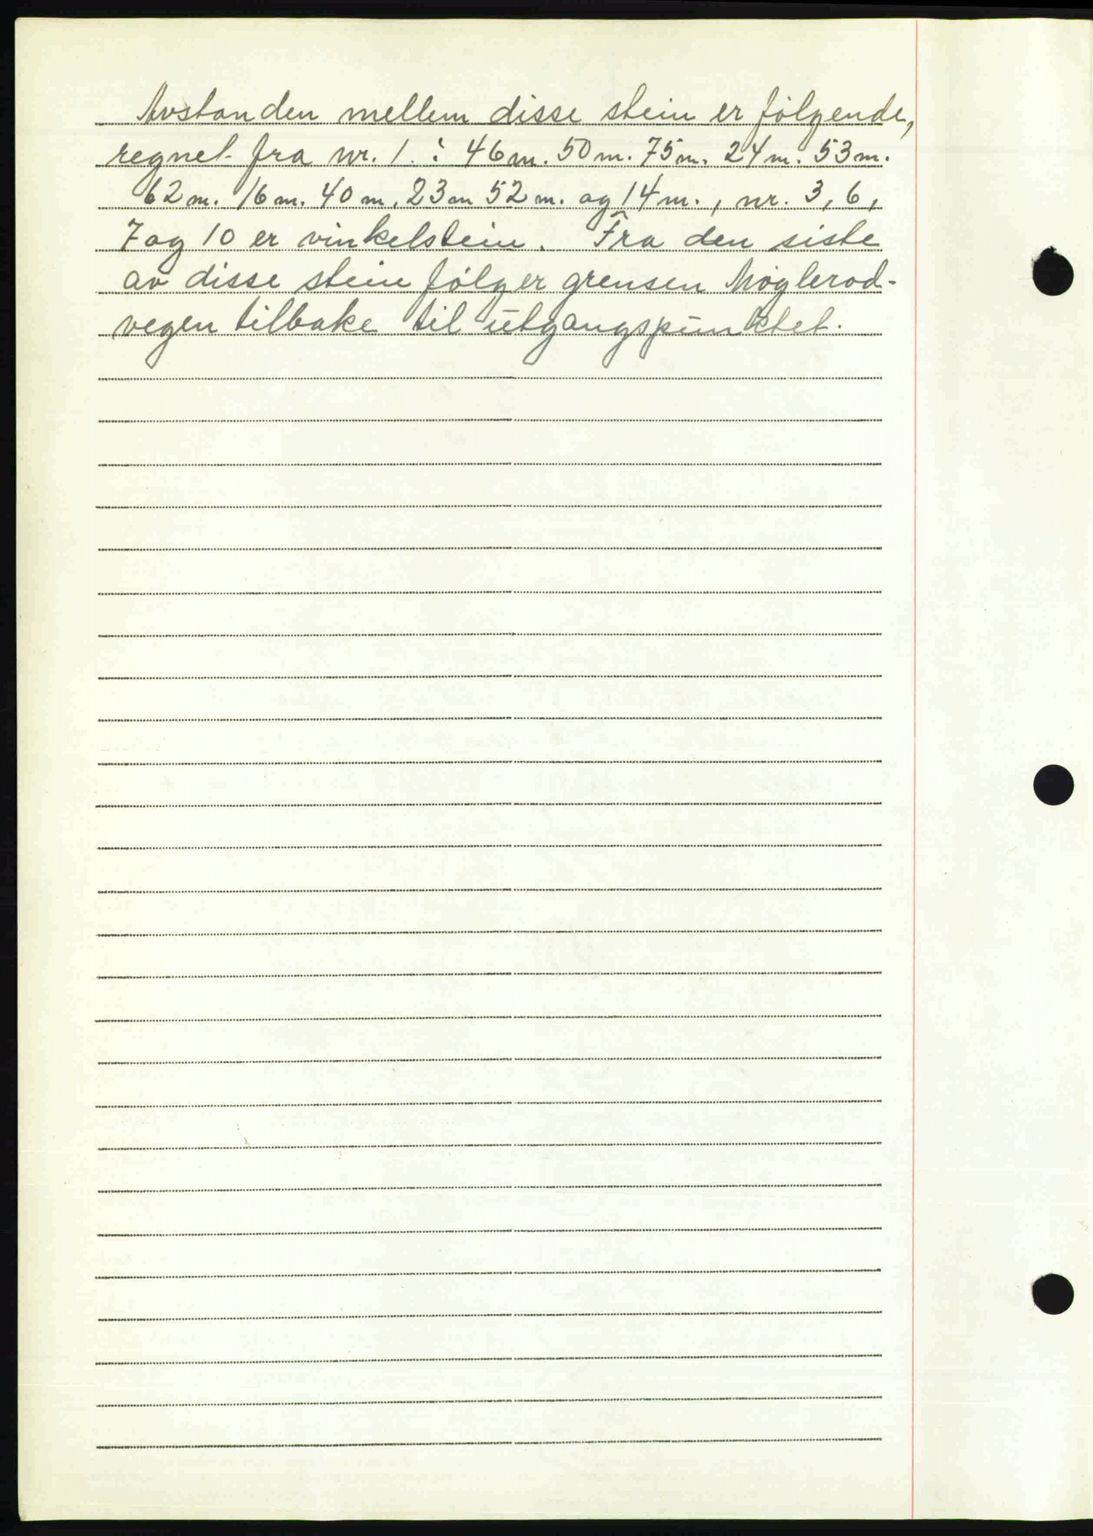 Avstanden mellem disse stein er følgende,
regnet fra nr. 1. : 46 m. 50 m. 75 m. 24 m. 53 m.
62 m. 16 m. 40 m. 23 m 52 m. og 14 m., nr. 3, 6,
7 og 10 er vinkelstein. Fra den siste
av disse stein følger grensen Møglerød-
vegen tilbake til utgangspunktet.